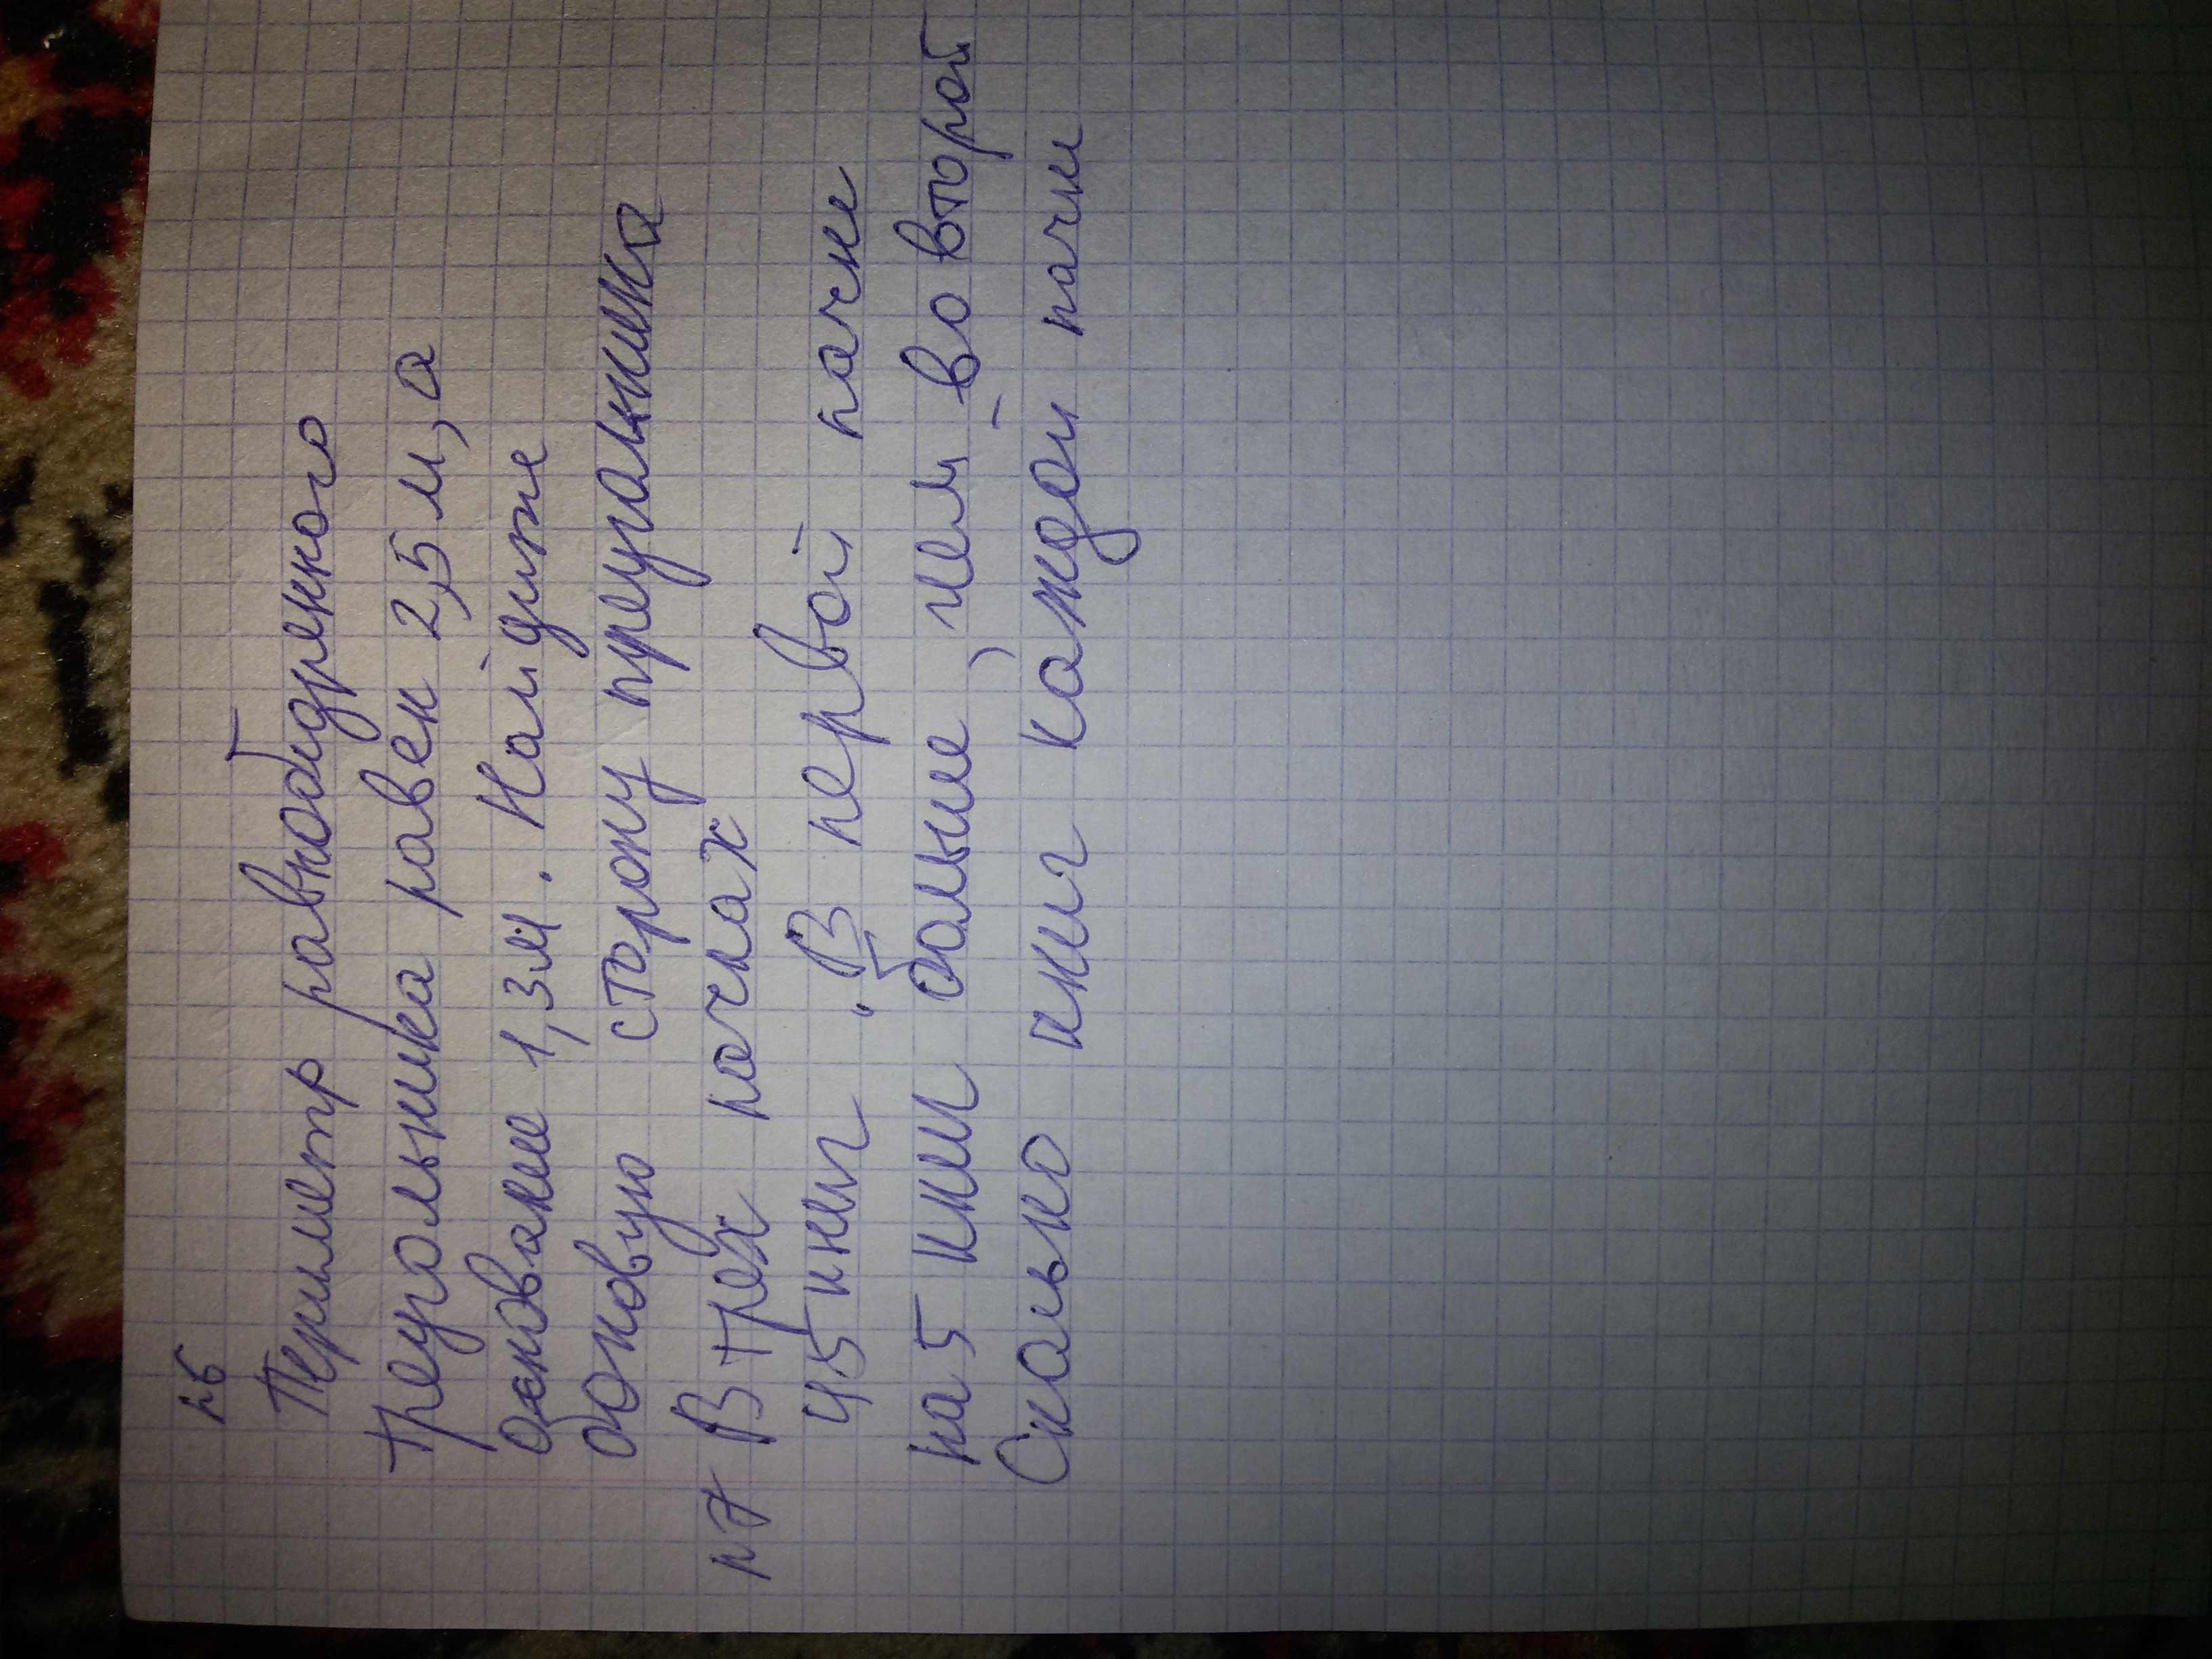 №6
Периметр равнобдренного
треугольника равен 2,5 м, а
основание 1,3м. Найдите
боковую сторону треуганника
№7 В трех пачках
45 книг. В первой пачке
на 5 книг больше, чем во второй
Сколько книг каждой пачки